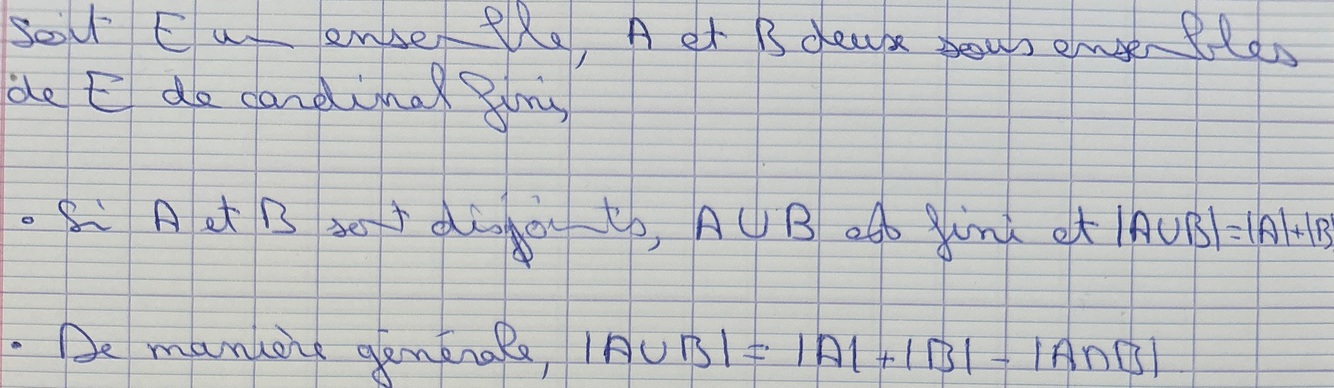 Soit E un ensemble, A et B deux sous ensembles
de E de cardinal fini,
• Si A et B sont disjoints, A ∪ B est fini et |A∪B|=|A|+|B
• De manière générale, |A∪B| = |A| + |B| - |A∩B|